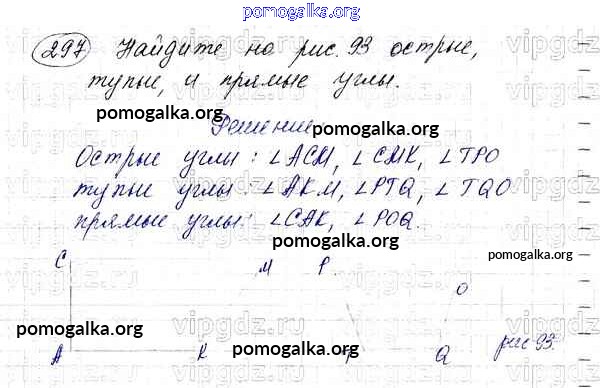 pomogalka.org
297 Найдите на рис. 93 острые,
тупые, и прямые углы.
pomogalka.org
pomogalka.org
Решение.
Острые углы: ∠ACM, ∠CMK, ∠TPO
pomogalka.org
тупые углы: ∠AKM, ∠PTQ, ∠TQO
pomogalka.org
прямые углы: ∠CAK, ∠POQ.
pomogalka.org
C M P
O
pomogalka.org
pomogalka.org
pomogalka.org
A K T Q рис 93.
vipgdz.ru